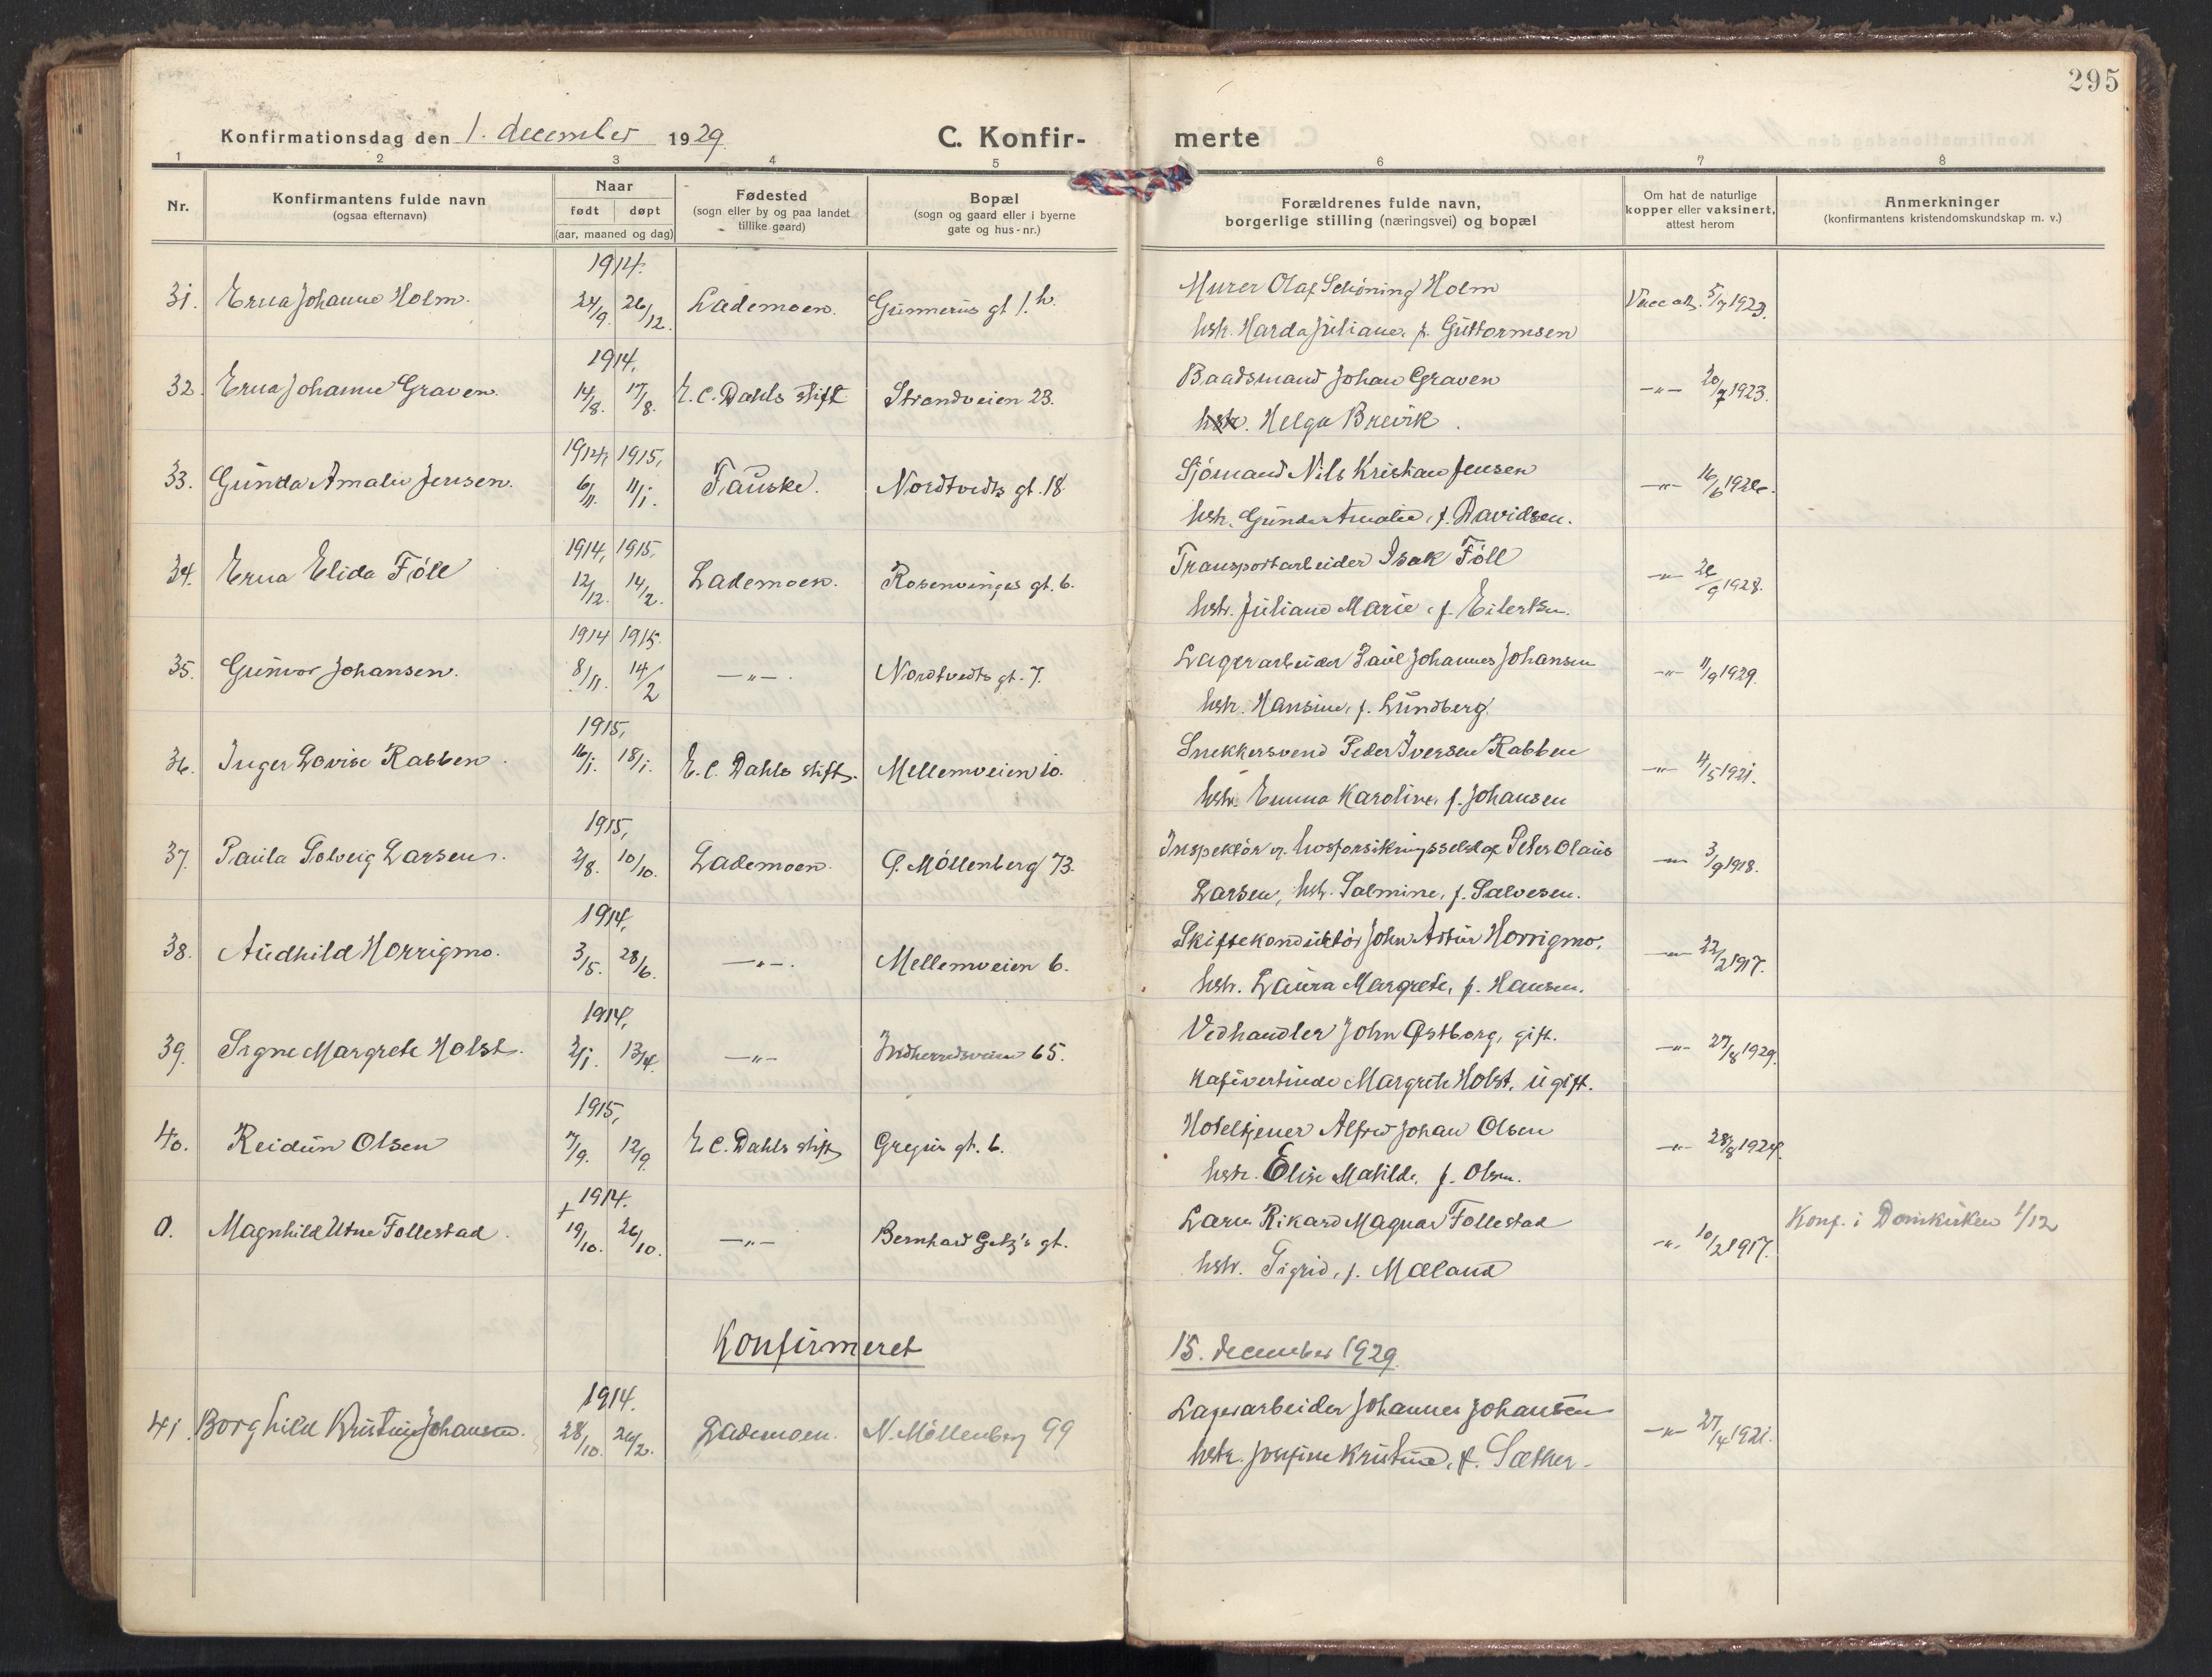 295
Konfirmationsdag den 1. december 1929.
C. Konfir- merte
1 2 3 4 5 6 7 8
Nr.
Konfirmantens fulde navn
(ogsaa efternavn)
Naar
født døpt
(aar, maaned og dag)
Fødested
(sogn eller by og paa landet
tillike gaard)
Bopæl
(sogn og gaard eller i byerne
gate og hus-nr.)
Forældrenes fulde navn,
borgerlige stilling (næringsvei) og bopæl
Om hat de naturlige
kopper eller vaksinert,
attest herom
Anmerkninger
(konfirmantens kristendomskundskap m. v.)
1914.
31. Erna Johanne Holm. 24/9. 26/12. Lademoen. Gunnerus gt 1.h. Murer Olaf Schöning Holm Vacc att. 5/7 1923.
hstr. Harda Juliane, f. Guttormsen
1914,
32. Erna Johanne Graven. 14/8. 17/8. E. C. Dahls stift Strandveien 23. Baadsmand Johan Graven —"— 20/7 1923.
hstr. Helga Brevik.
1914, 1915,
33. Gunda Amalie Jensen. 6/11. 11/1. Fauske. Nordtvedts gt. 18 Sjömand Nils Kristian Jensen —"— 16/6
hstr. Gunda Amalie, f. Davidsen.
1914, 1915,
34. Erna Elida Föll 12/12. 14/2. Lademoen. Rosenvinges gt. 6. Transportarbeider Isak Föll —"— 1928.
hstr. Juliane Marie, f. Eilertsen.
1914 1915.
35. Gunvor Johansen. 8/11. 14/2 —"—. Nordtvedts gt. 7. Lagerarbeider Paul Johannes Johansen —"— 11/9 1929.
hstr. Hansine, f. Lundberg.
1915,
36. Inger Lovise Rabben. 16/1. 18/1. E. C. Dahls stift. Mellemveien 10. Snekkersvend Peder Iversen Rabben —"— 4/5 1921.
hstr. Emma Karoline, f. Johansen
1915,
37. Paula Solveig Larsen. 2/8. 10/10. Lademoen. Ø. Möllenberg 73. Inspektör v. livsforsikringsselskap Peter Olaus —"— 3/9 1918.
Larsen, hstr. Salmine, f. Salvesen.
1914,
38. Audhild Horrigmo. 3/5. 28/6. —"—. Mellemveien 6. Skiftekonduktör John Artur Horrigmo, —"— 22/2 1917.
hstr. Laura Margrete, f. Hansen.
1914,
39. Signe Margrete Holst. 2/1. 13/4. —"— Indherredsveien 65. Vedhandler John Østborg, gift. —"— 27/8 1929.
Kafévertinde Margrete Holst, ugift.
1915,
40. Reidun Olsen 7/9. 12/9. E. C. Dahls stift Gregus gt. 6. Hoteltjener Alfred Johan Olsen —"— 28/8 1924.
hstr. Elise Matilde, f. Olsen.
+ 1914.
0. Magnhild Utne Follestad. 19/10. 26/10. —"— Bernhard Getz's gt. Rikard Magnar Follestad —"— 10/2 1917. Konf. i Domkirken 1/12
hstr. Sigrid, f. Mæland
Konfirmeret 15. december 1929.
1914.
41. Borghild Kristine Johansen. 28/10. Lademoen. N. Möllenberg 99 Lagerarbeider Johannes Johansen —"— 27/4 1921.
hstr. Josefine Kristine, f. Sæther.